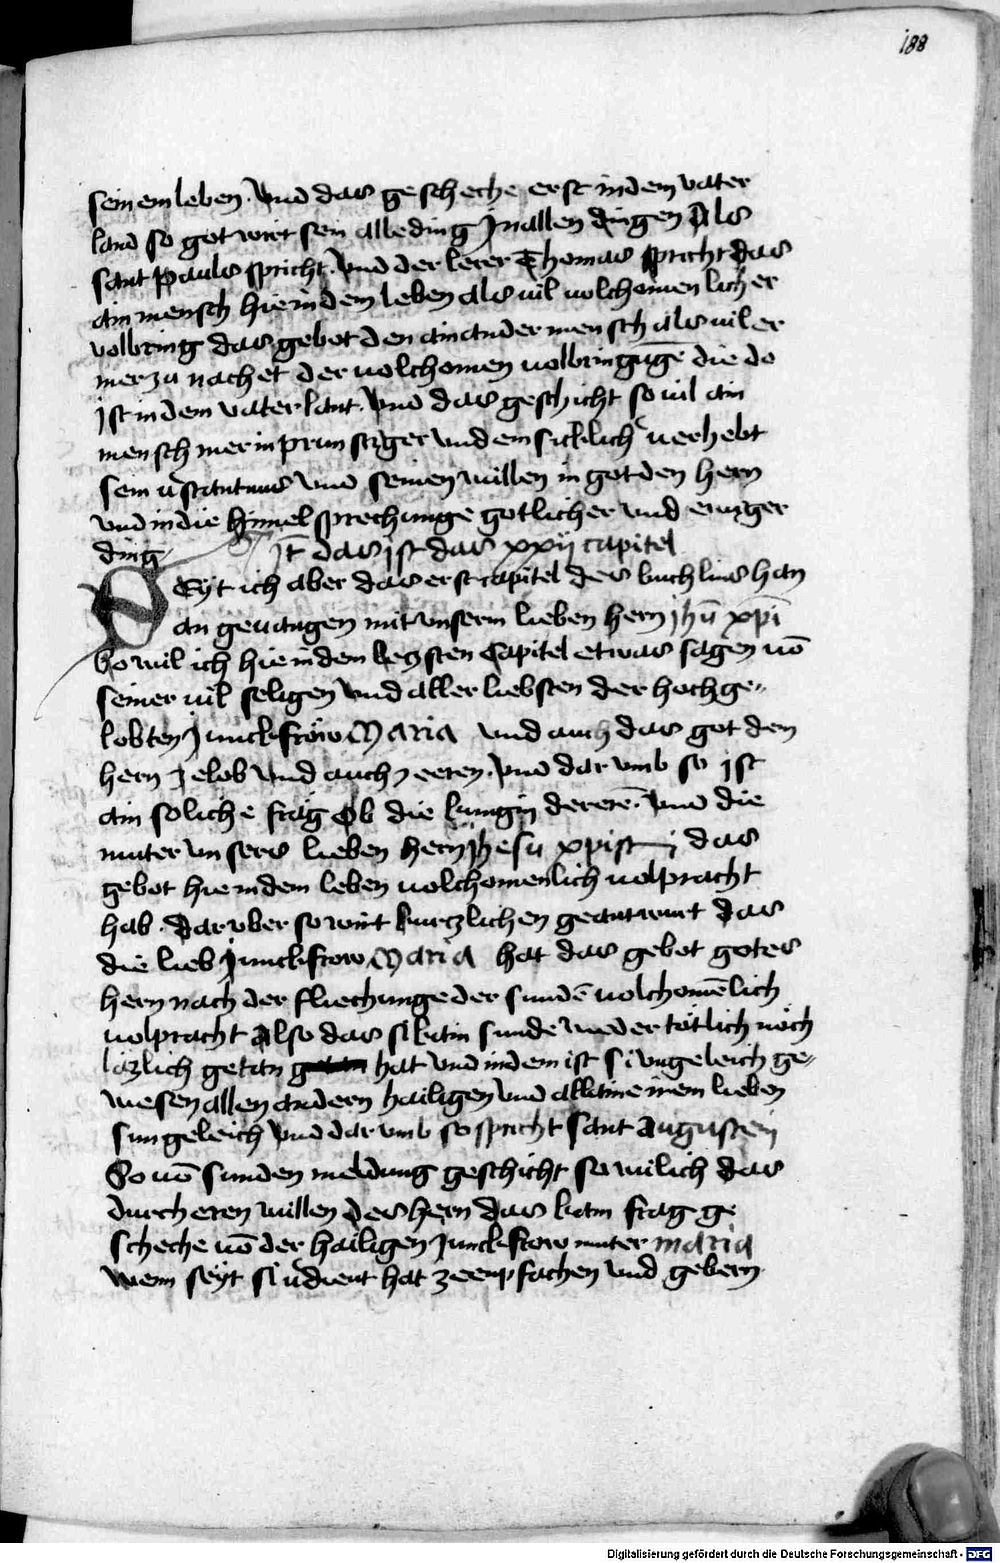 188
seinem leben. Vnd das geschech erst in dem vater
land so got wirt sein alle ding Jn allen dingen Als
sant Pauls spricht. Vnd der lerer Thomas spricht das
ain mensch hie in dem leben als vil volchomenlicher
volbring das gebot den ain ander mensch als vil er
mer zu nachet der volchomen volbringūge die do
ist in dem vaterlant. Vnd das geschicht so vil ain
mensch mer inprunstiger vnd emsicklich verhebt
sein vstantnus vnd seinen willen in got den hern
vnd in die himel sprechunge gotlicher vnd ewiger
ding Jt̄ das ist das xxij capitel
SEyt ich aber das erst capitel des buchlins han
an geuangen mit vnserm lieben hern jhū xpī
So wil ich hie in dem leczsten Capitel etwas sagen vō
seiner vil seligen vnd aller liebsten der hochge„
lobten Junckfrow Maria vnd auch das got den
hern ze lob vnd auch ze eeren. Vnd dar vmb so ist
ain soliche frag Ob die kungin der eren. Vnd die
muter vnsers lieben hern Jhesu xpisti das
gebot hie in dem leben volchomenlich volpracht
hab. Dar vber so wirt kurczlichen geantwurt das
die lieb Junckfrow Maria hat das gebot gotes
hern nach der fliechunge der sundē volchomēlich
volpracht Also das si kain sunde weder tötlich noch
läzlich getan hat vnd in dem ist si vngeleich ge„
wesen allen andern hailigen vnd allaine irem lieben
sun geleich Vnd dar vmb so spricht sant Augustein
So vō sunden meldung geschicht so wil ich das
durch eren willen des hern das kain frag ge
scheche vō der hailigen Junckfrow muter maria
Wenn seyt si verdient hat ze enpfachen vnd gebern
Digitalisierung gefördert durch die Deutsche Forschungsgemeinschaft - DFG